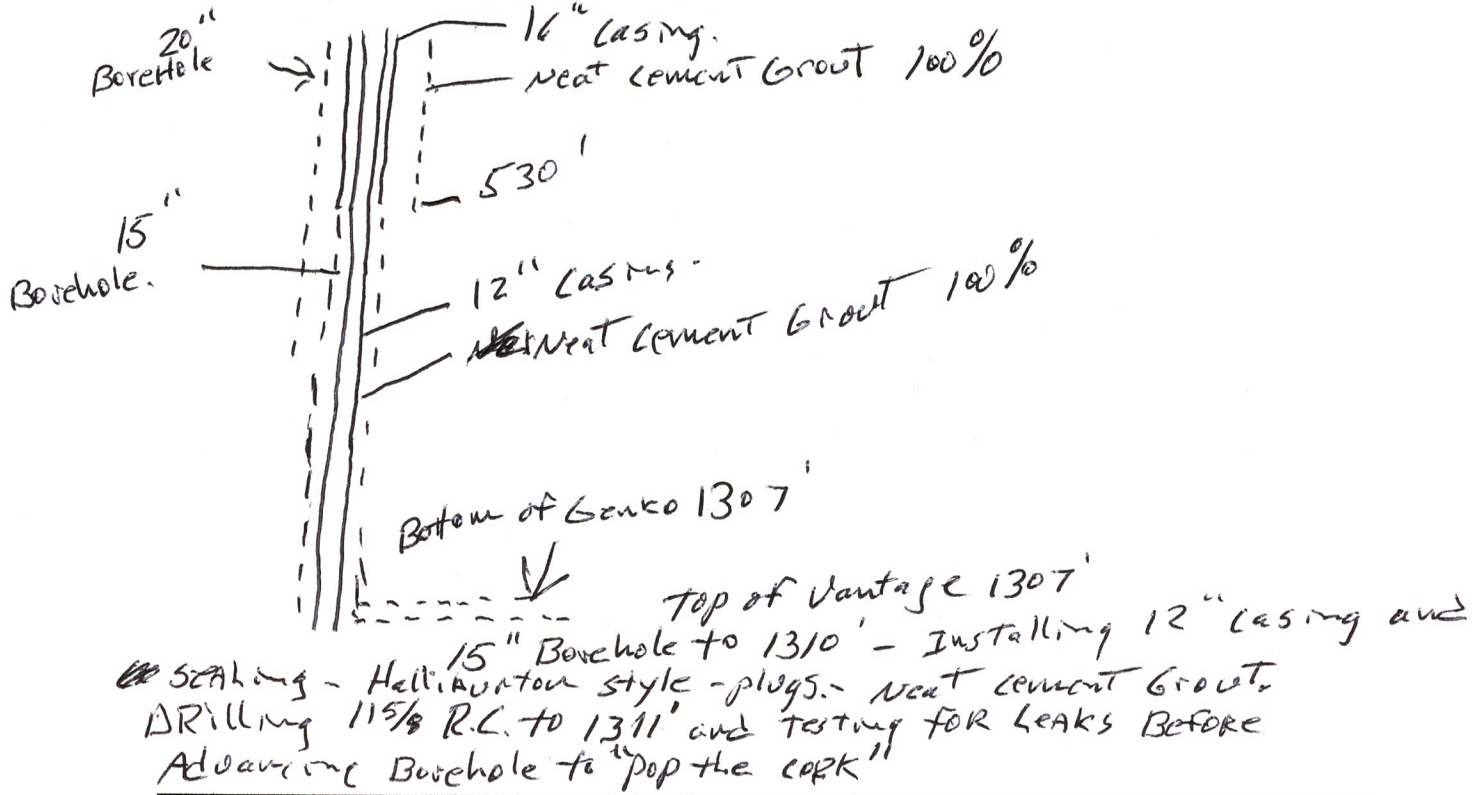 20"
BoreHole
16" Casing.
Neat Cement Grout 100%
530'
15"
Borehole.
12" Casing.
Neat Cement Grout 100%
Bottom of Genko 1307'
Top of Vantage 1307'
15" Borehole to 1310' - Installing 12" casing and
Sealing - Halliburton style - plugs. - Neat cement Grout.
DRilling 11 5/8 R.C. to 1311' and testing FOR LeAKS BeFoRe
Advancing Borehole to "Pop the coRk"